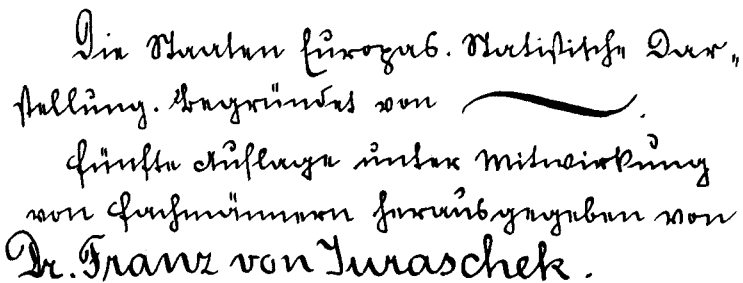 Die Staaten Europas. Statistische Dar-
stellung. Begründet von .
Fünfte Auflage unter Mitwirkung
von Fachmännern herausgegeben von
Dr. Franz von Juraschek.